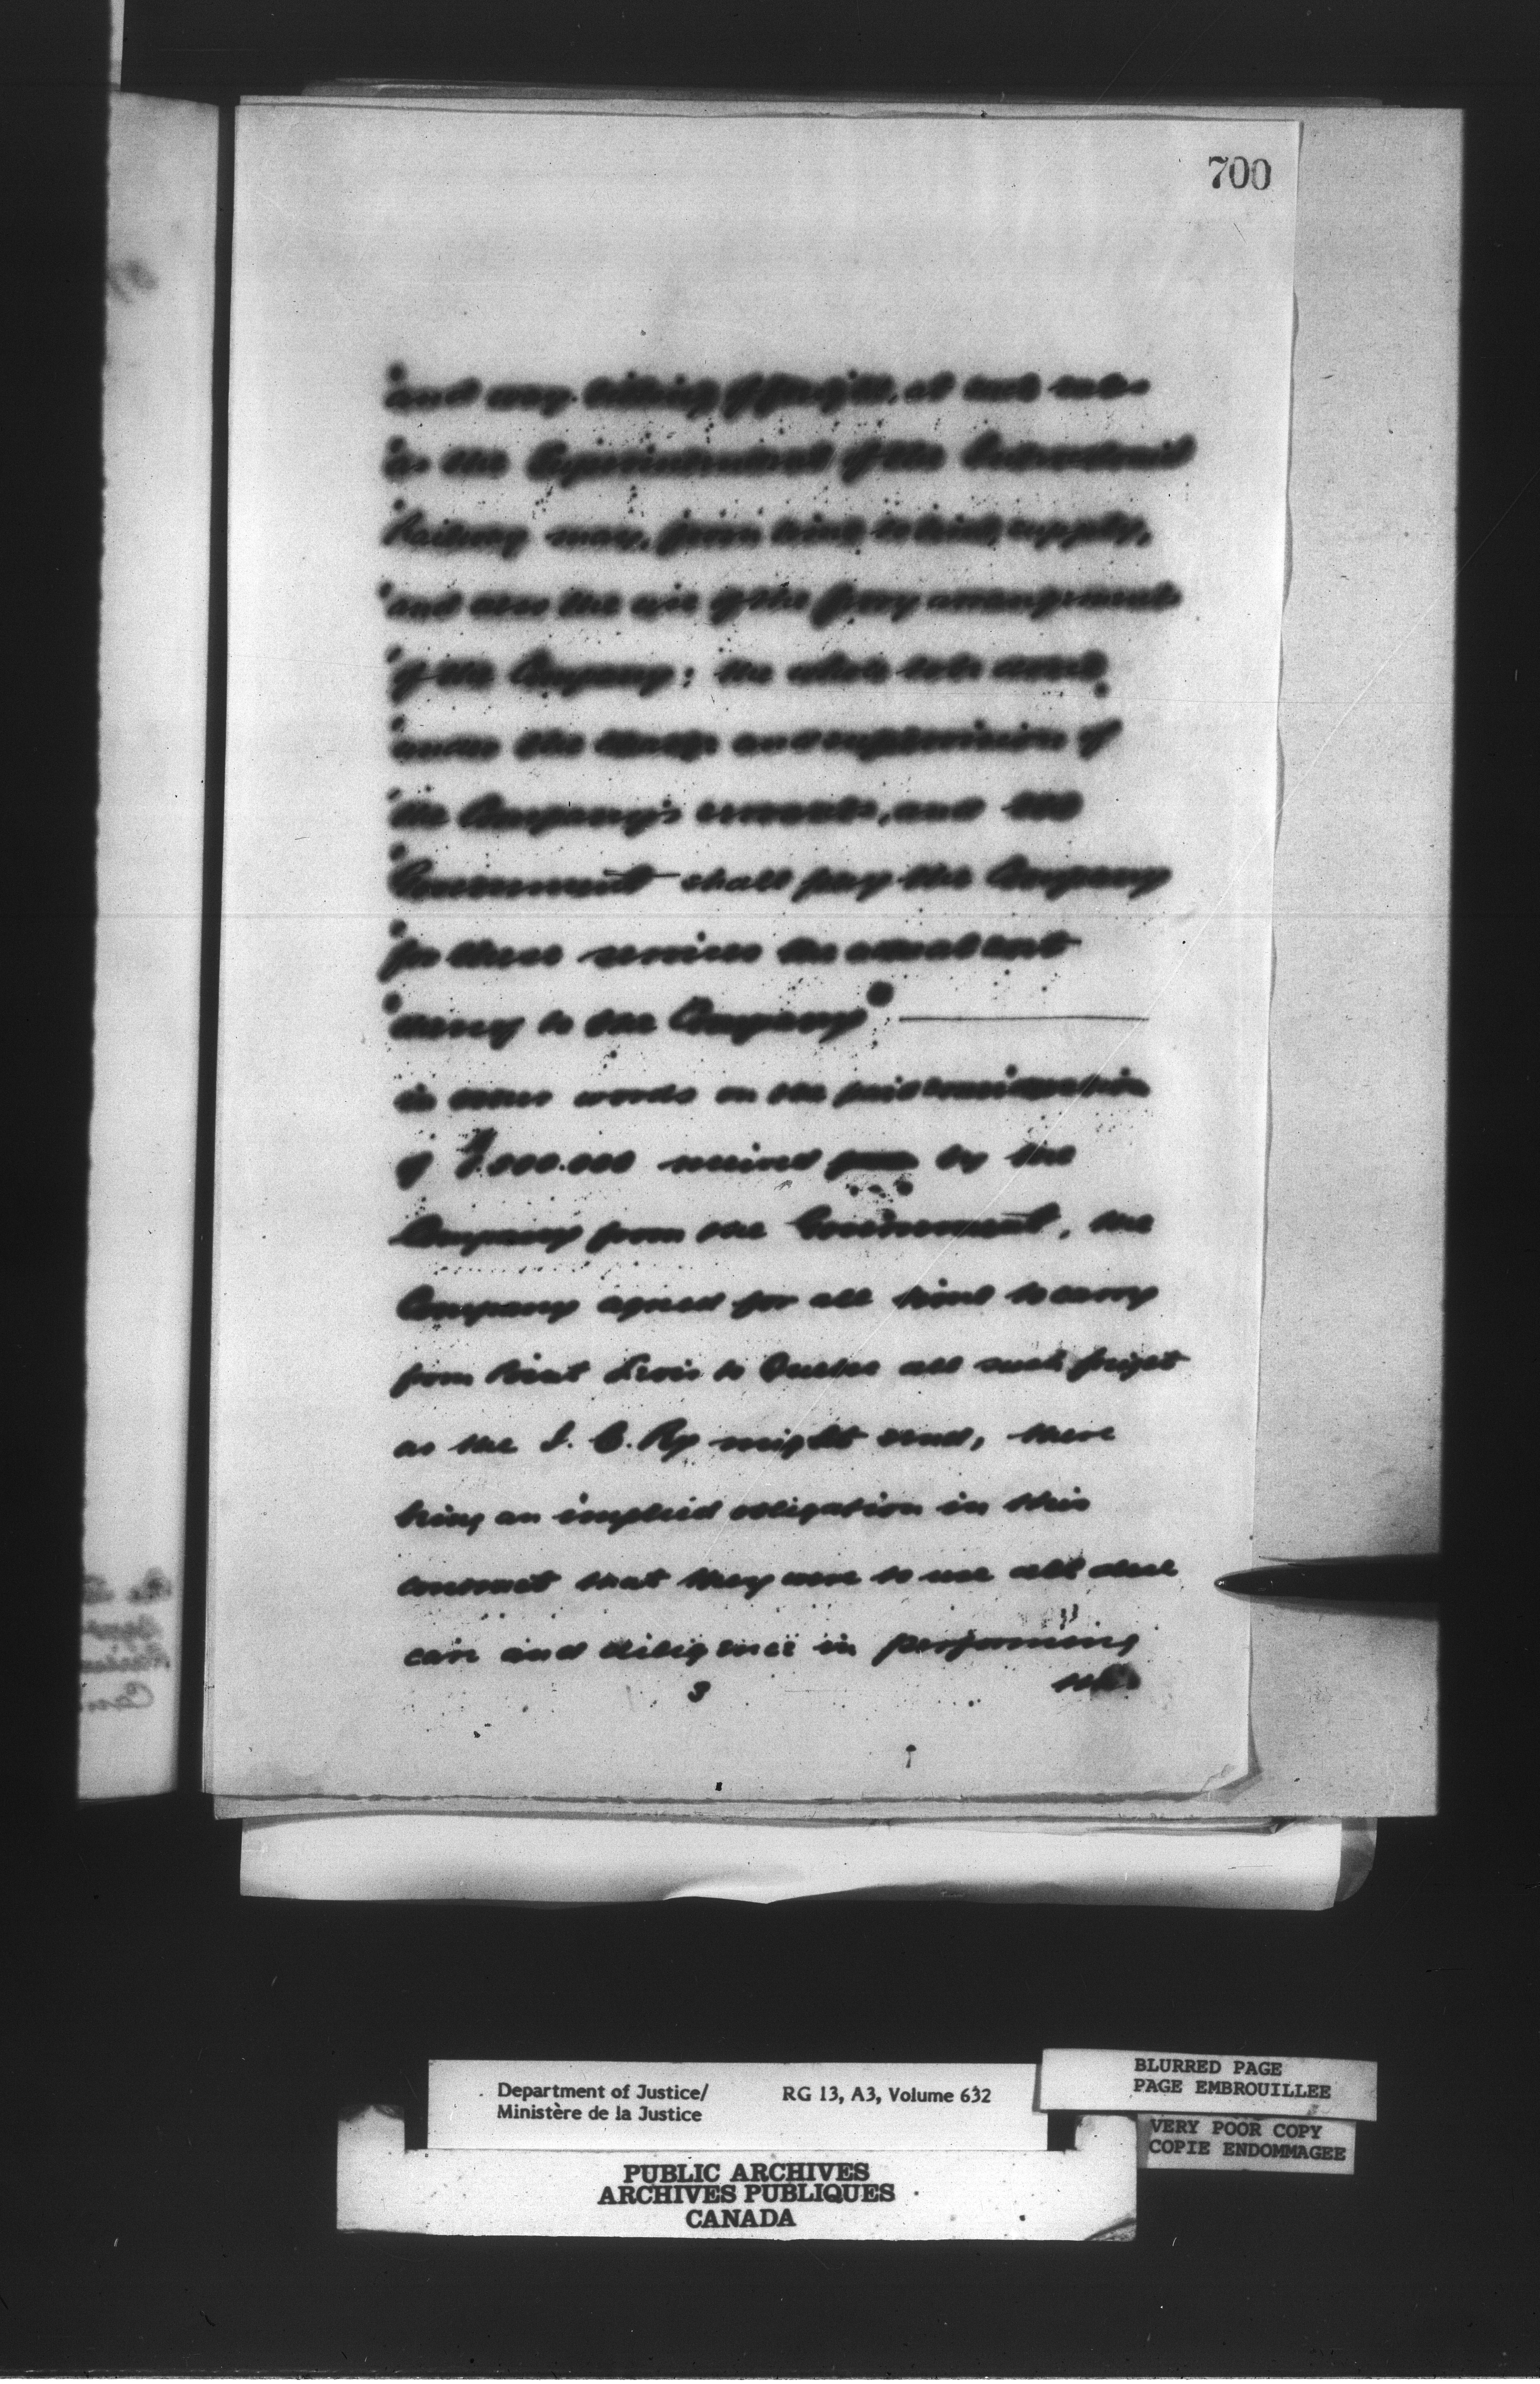 700
"and way billing of freight, at such rates
"as the Superintendent of the Intercolonial
"Railway may, from time to time, supply,
"and also the use of the ferry arrangements
"of the Company: the whole to be worked
"under the charge and supervision of
"the Company's servants, and the
"Government shall pay the Company
"for these services the actual cost
"thereof to the Company"
in other words on the paid consideration
of $ ,000.000 received by the
Company from the Government, the
Company agreed for all time to carry
from Point Levis to Quebec all such freight
as the I. C. Ry might send, there
being an implied obligation in this
contract that they were to use all due
care and diligence in performing
3
Department of Justice/ RG 13, A3, Volume 632
Ministère de la Justice
BLURRED PAGE
PAGE EMBROUILLEE
VERY POOR COPY
COPIE ENDOMMAGEE
PUBLIC ARCHIVES
ARCHIVES PUBLIQUES
CANADA